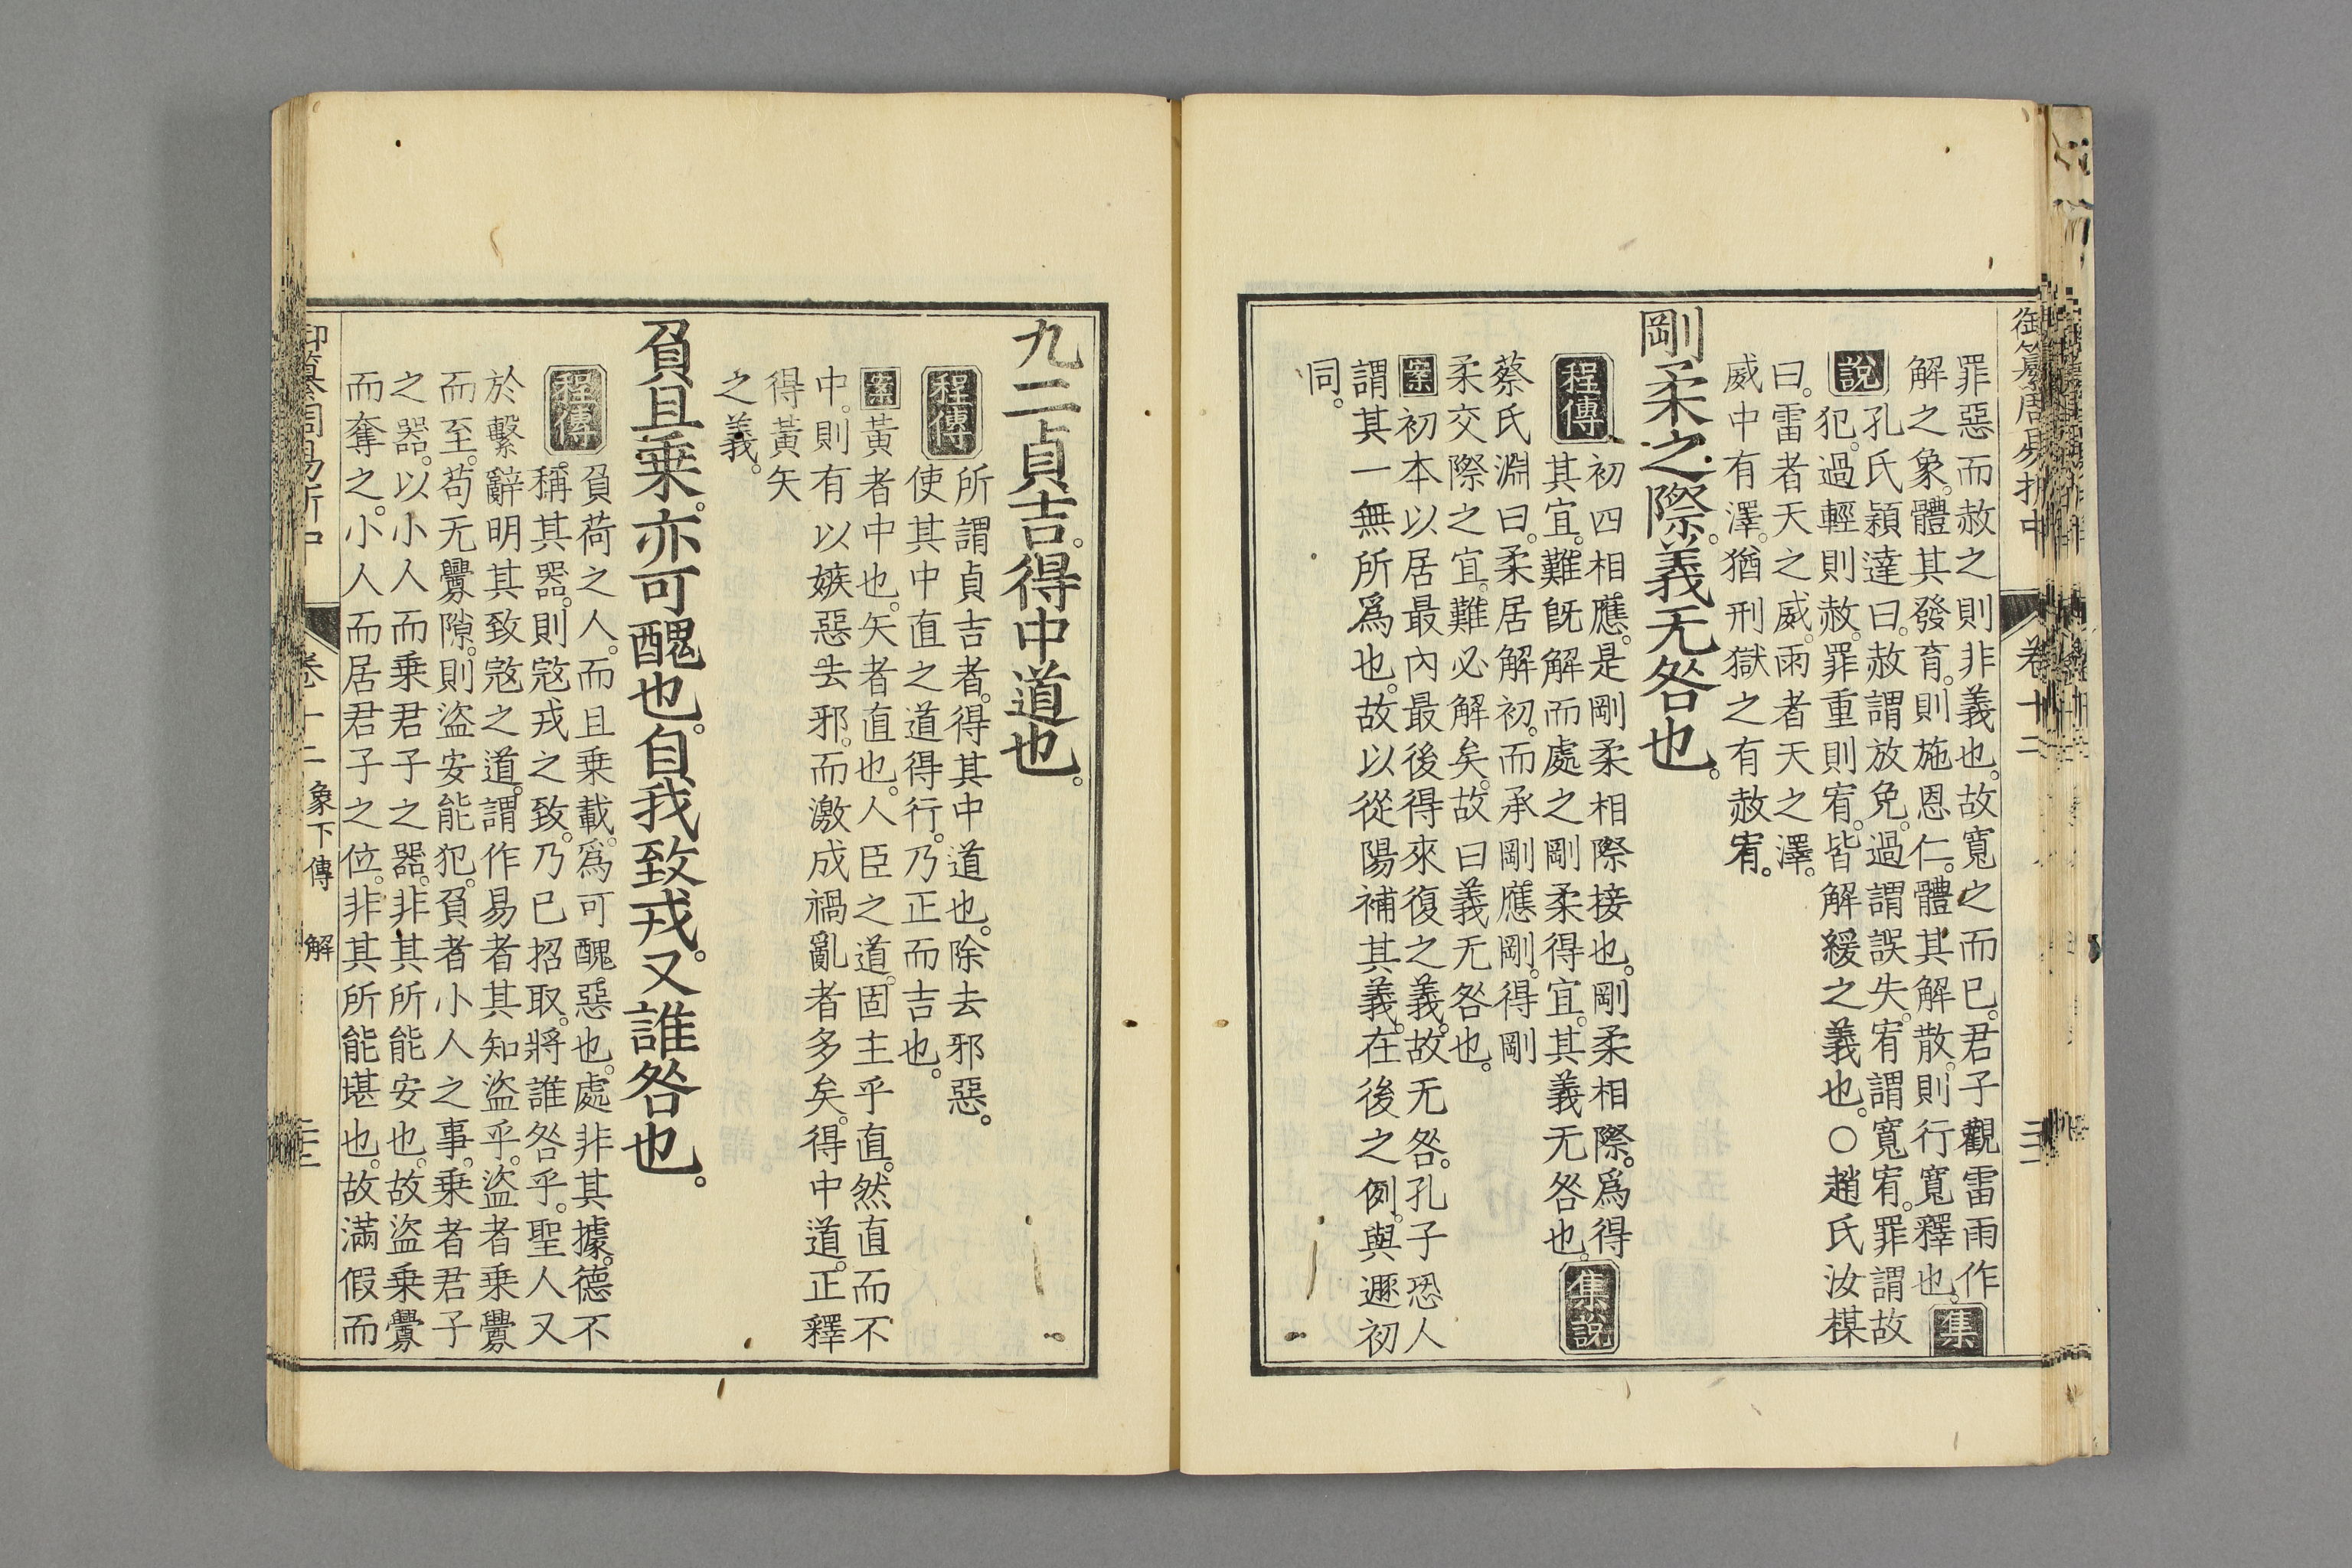 罪惡而赦之則非義也。故寬之而已。君子觀雷雨作
解之象。體其發育。則施恩仁。體其解散。則行寬釋也。集
說孔氏穎達曰。赦謂放免。過謂誤失。宥謂寬宥。罪謂故
犯。過輕則赦。罪重則宥。皆解緩之義也。○趙氏汝楳
曰。雷者天之威。雨者天之澤。
威中有澤。猶刑獄之有赦宥。
剛柔之際。義无咎也。
程傳初四相應。是剛柔相際接也。剛柔相際。爲得
其宜。難旣解而處之剛柔得宜。其義无咎也。集說
蔡氏淵曰。柔居解初。而承剛應剛。得剛
柔交際之宜。難必解矣。故曰義无咎也。
案初本以居最內最後得來復之義。故无咎。孔子恐人
謂其一無所爲也。故以從陽補其義。在後之例。與遯初
同。
御纂周易折中
卷十二
九二貞吉。得中道也。
程傳所謂貞吉者。得其中道也。除去邪惡。
使其中直之道得行。乃正而吉也。
案黃者中也。矢者直也。人臣之道。固主乎直。然直而不
中。則有以嫉惡去邪。而激成禍亂者多矣。得中道。正釋
得黃矢
之義。
負且乗。亦可醜也。自我致戎。又誰咎也。
程傳負荷之人。而且乗載。爲可醜惡也。處非其據。德不
稱其器。則寇戎之致。乃已招取。將誰咎乎。聖人又
於繫辭明其致寇之道。謂作易者其知盜乎。盜者乗釁
而至。苟无釁隙。則盜安能犯。負者小人之事。乗者君子
之器。以小人而乗君子之器。非其所能安也。故盜乗釁
而奪之。小人而居君子之位。非其所能堪也。故滿假而
御纂周易折中
卷十二 象下傳 解